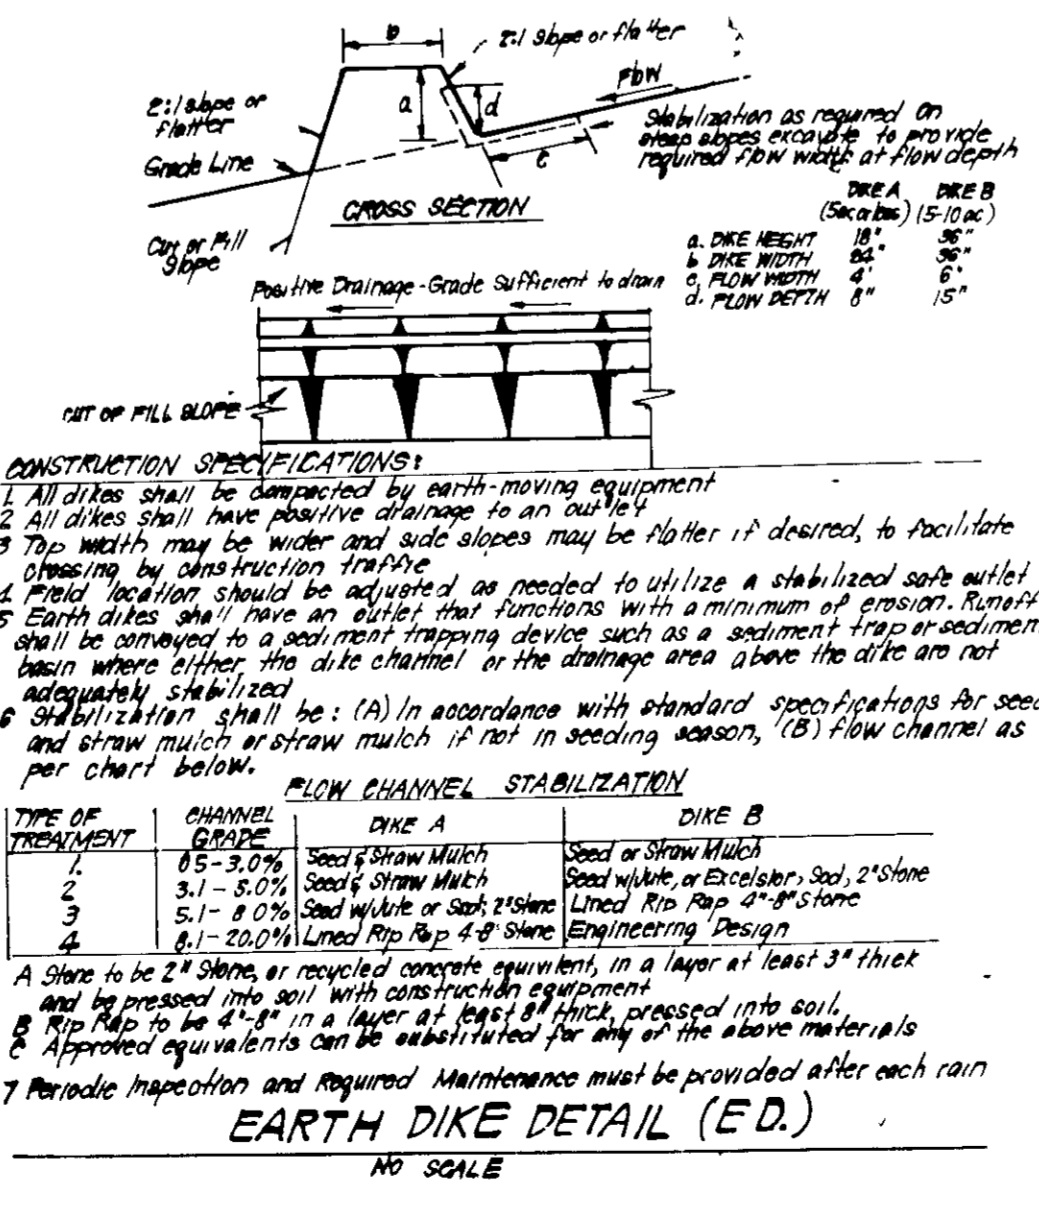 b
2:1 slope or flatter
Flow
2:1 slope or
flatter
a
d
Stabilization as required on
steep slopes excavate to provide
required flow width at flow depth
Grade Line
c
CROSS SECTION
Cut or Fill
Slope
DIKE A DIKE B
(5ac or less) (5-10 ac)
a. DIKE HEIGHT 18" 36"
b DIKE WIDTH 24" 36"
c. FLOW WIDTH 4' 6'
d. FLOW DEPTH 8" 15"
Positive Drainage-Grade Sufficient to drain
CUT OF FILL SLOPE
CONSTRUCTION SPECIFICATIONS:
1. All dikes shall be compacted by earth-moving equipment
2 All dikes shall have positive drainage to an outlet
3 Top width may be wider and side slopes may be flatter if desired, to facilitate
crossing by construction traffic
4 Field location should be adjusted as needed to utilize a stabilized safe outlet
5 Earth dikes shall have an outlet that functions with a minimum of erosion. Runoff
shall be conveyed to a sediment trapping device such as a sediment trap or sedimen
basin where either the dike channel or the drainage area above the dike are not
adequately stabilized
6 Stabilization shall be: (A) In accordance with standard specifications for seed
and straw mulch or straw mulch if not in seeding season, (B) flow channel as
per chart below.
FLOW CHANNEL STABILIZATION
TYPE OF CHANNEL DIKE A DIKE B
TREATMENT GRADE
1. 05-3.0% Seed & Straw Mulch Seed or Straw Mulch
2 3.1-5.0% Seed & Straw Mulch Seed w/Jute, or Excelsior, Sod, 2" Stone
3 5.1-8 0% Seed w/Jute or Sod; 2" Stone Lined Rip Rap 4"-8" Stone
4 8.1-20.0% Lined Rip Rap 4-8" Stone Engineering Design
A Stone to be 2" Stone, or recycled concrete equivilent, in a layer at least 3" thick
and be pressed into soil with construction equipment
B Rip Rap to be 4"-8" in a layer at least 8" thick, pressed into soil.
C Approved equivalents can be substituted for any of the above materials
7 Periodic Inspection and Required Maintenance must be provided after each rain
EARTH DIKE DETAIL (E D.)
NO SCALE